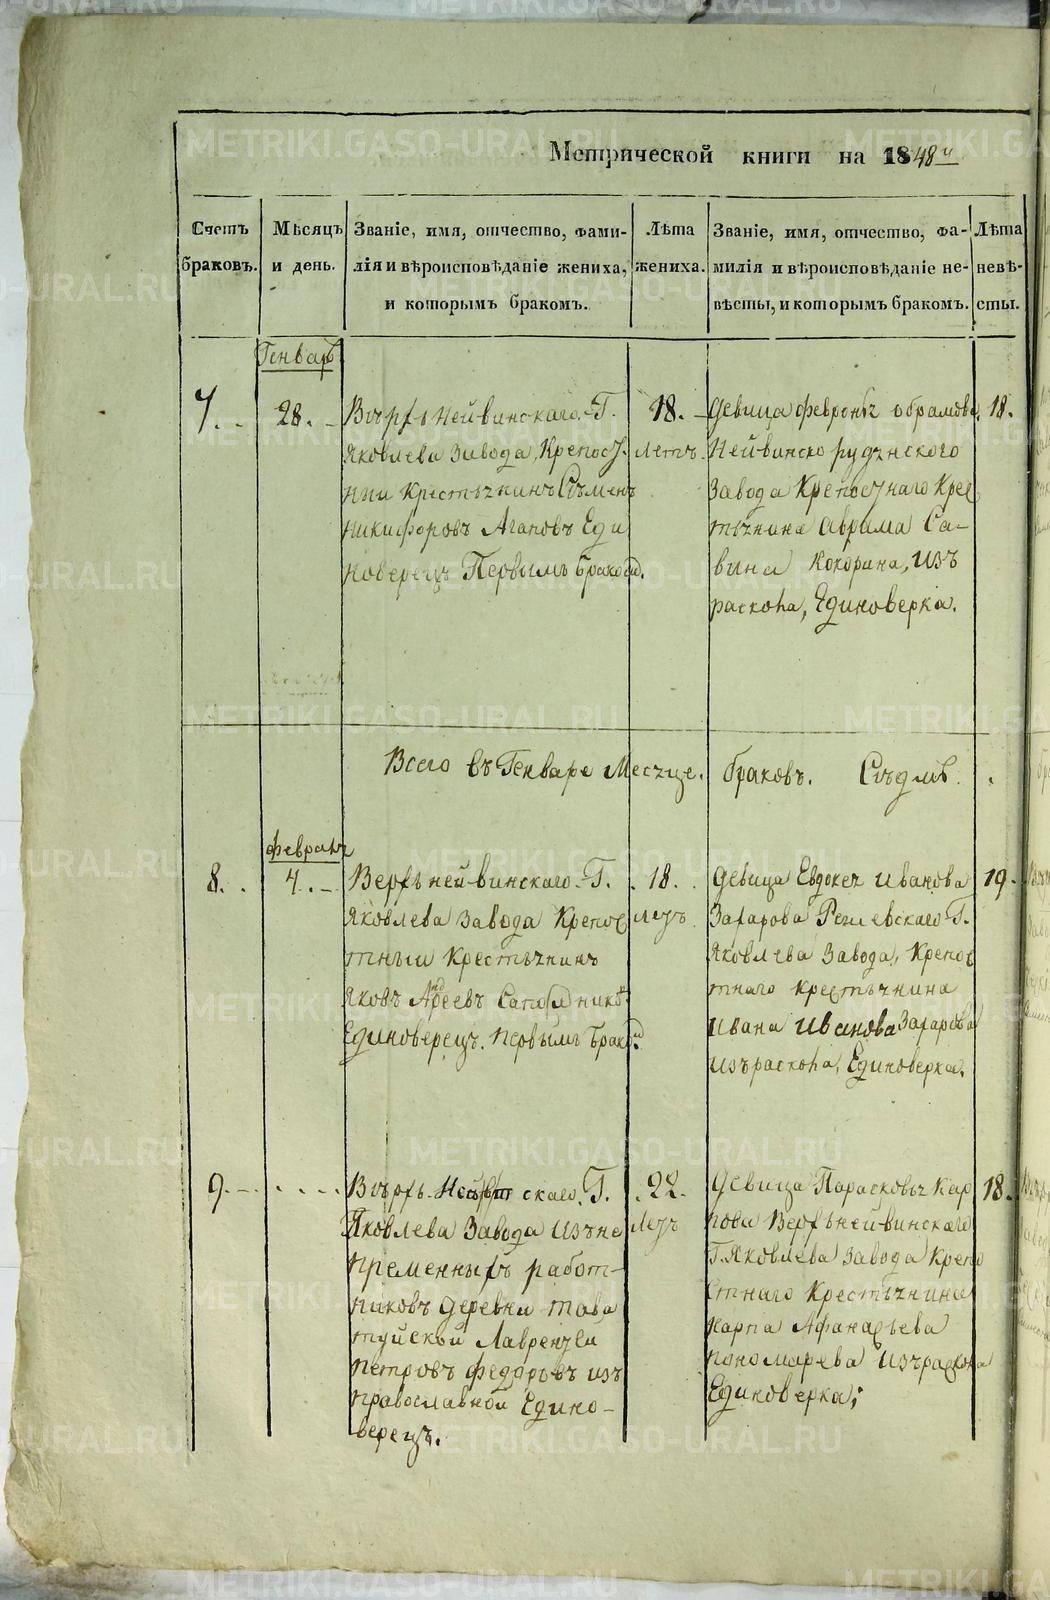 Метрической книги на 1848й
Счетъ браковъ.
Мѣсяцъ и день.
Званіе, имя, отчество, фами-
лія и вѣроисповѣданіе жениха,
и которымъ бракомъ.
Лѣта жениха.
Званіе, имя, отчество, фа-
милія и вѣроисповѣданіе не-
вѣсты, и которымъ бракомъ.
Лѣта невѣ-
сты.
Генварь
7.
28.
Вѣрхъ Нейвинскаго. Г.
Яковлева Завода, Крепос
нии крестьянинъ Сѣменъ
Никифоровъ Агаповъ Еди
новерецъ Первымъ бракомъ.
18.
летъ.
Девица Февронья Абрамова
Нейвинско руднского
Завода Крепоснаго Крес
тьянина Аврама Са-
вина Кокорина, изъ
раскола, Единоверка.
18.
Всего въ Генваре Месяце. браковъ. Сѣдмь.
Февраля
8.
4.
Верхъ ней-винскаго Г.
Яковлева Завода Крепос
тныи Крестьянинъ
Яковъ Андреевъ Сапожникъ
Единоверецъ. первымъ бракомъ
18.
летъ
Девица Евдокея Иванова
Захарова Режевскаго Г.
Яковлева Завода, Крепос
тнаго крестьянина
Ивана Иванова Захарова
изъ раскола, Единоверка.
19.
9.
Вѣрхъ-Нейвинскаго. Г.
Яковлева Завода изъ не
пременныхъ работ-
никовъ деревни Тава
туйской Лаврентеи
Петровъ Федоровъ изъ
православной Едино-
верецъ.
22.
летъ
Девица Парасковья Кар
пова Верхъ нейвинскаго
Г. Яковлева Завода Крепо
стнаго Крестьянина
Карпа Афанасьева
Пономарева изъ раскола
Единоверка;
18.
METRIKI.GASO-URAL.RU